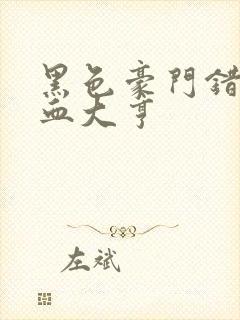 黑色豪門錯
血大亨
左斌